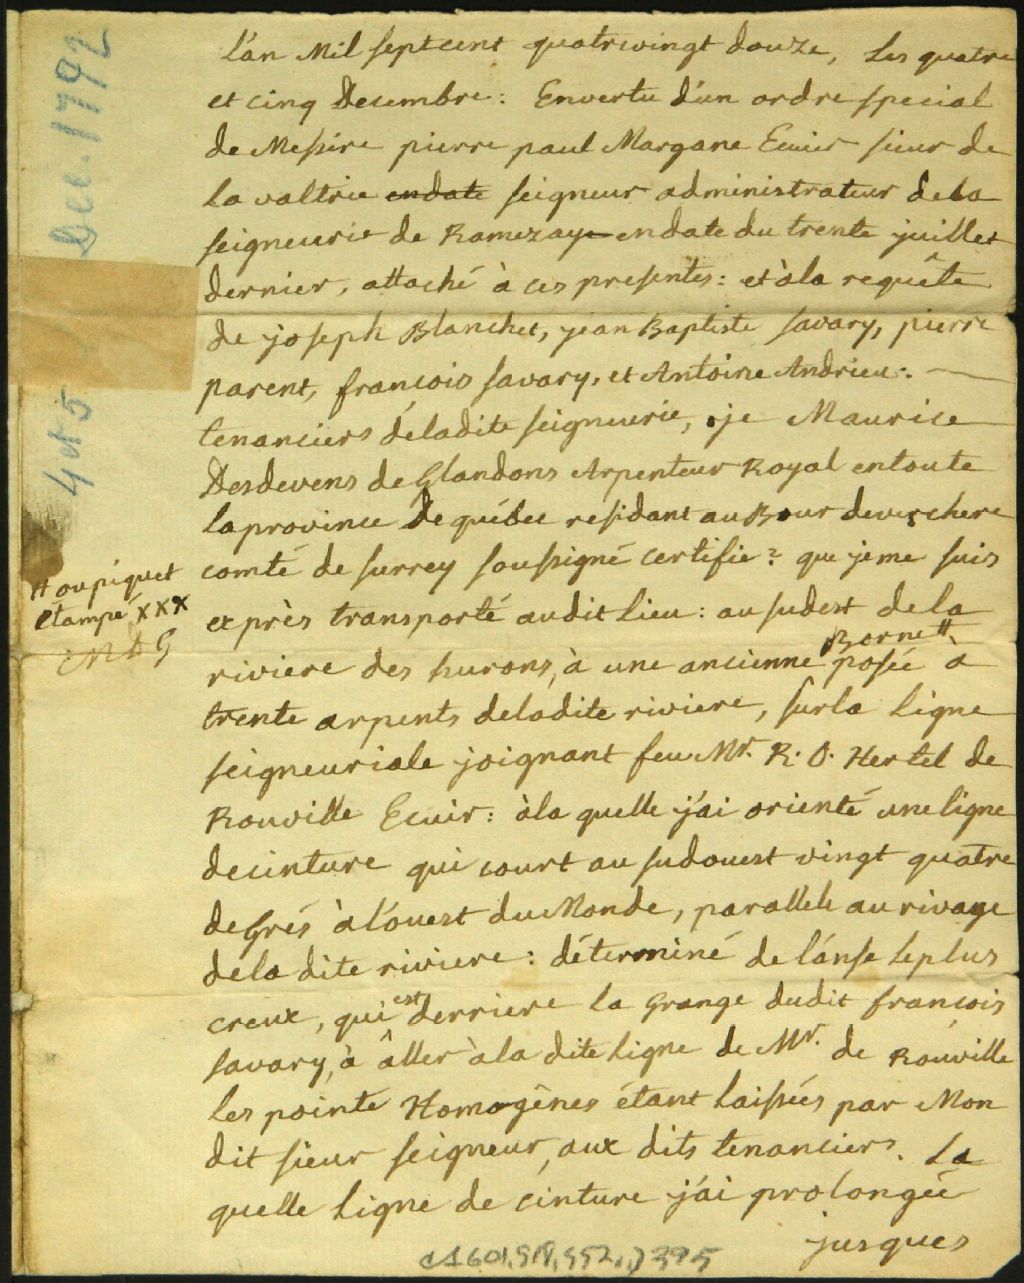 L'an Mil sept cent quatrevingt douze, Les quatre
et cinq Decembre : Envertu d'un ordre special
de Messire pierre paul Margane Ecuier sieur de
La valtrie endate seigneur administrateur dela
seigneurie de Ramezay endate du trente juillet
dernier, attaché à ces presentes : et àla requête
de joseph Blanchet, jean Baptiste savary, pierre
parent, françois savary, et Antoine Andrieu :
tenanciers deladite seigneurie, je Maurice
Desdevens de Glandons Arpenteur Royal entoute
laprovince de québec residant au Bour deverchere
comté de surrey soussigné certifie : que jeme suis
exprès transporté audit Lieu : au sudest de la
Borne tt
riviere des hurons, à une ancienne posée a
trente arpents deladite riviere, sur la Ligne
seigneuriale joignant feu Mr. R. O. Hertel de
Rouville Ecuier : àla quelle j'ai orienté une ligne
decinture qui court au sudouest vingt quatre
deGrés à l'ouest du Monde, parallele au rivage
dela dite riviere : déterminé de l'anse Le plus
creux, qui est derriere la Grange dudit françois
savary, à âller àla dite Ligne de Mr. de Rouville
les pointe Homogênes étant Laissées par Mon
dit sieur seigneur, aux dits tenanciers. La
quelle Ligne de cinture j'ai prolongée
jusques
tt ou piquet
étampé XXX
MDG
4 et 5
Dec. 1792